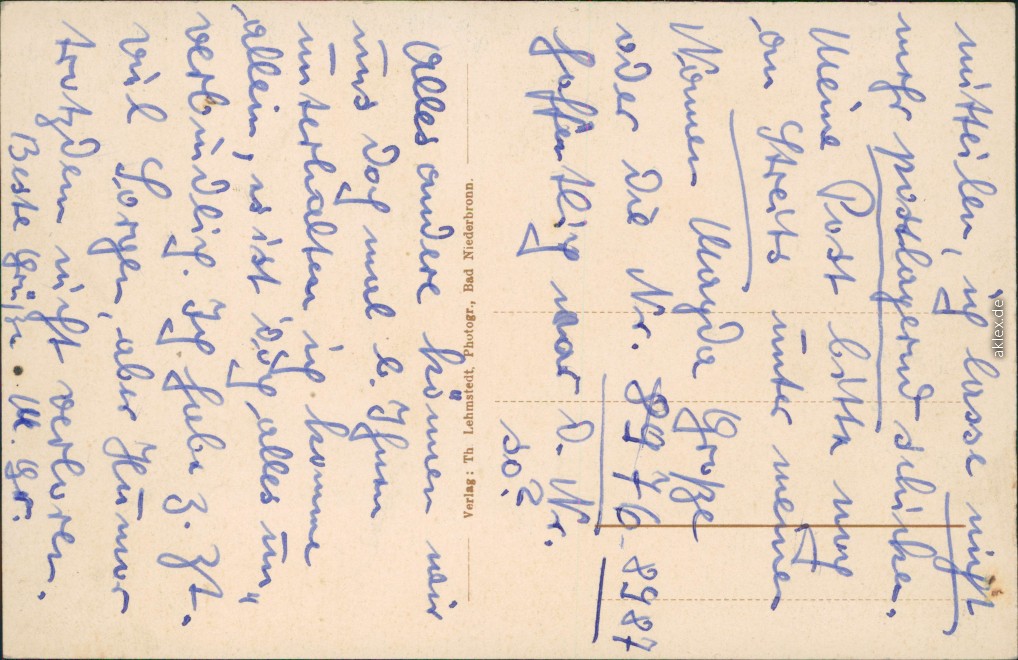 mitteilen, ich lasse nicht
mehr postlagernd schicken.
Meine Post bitte nur
an Streits unter meinem
Namen Magda Große
oder die Nr. 8976-8987
hoffentlich war d. Nr.
so?
Verlag: Th Lehmstedt, Photogr., Bad Niederbronn.
Alles andere können wir
uns doch mal b. Ihnen
unterhalten ich komme
allein, es ist doch alles un„
verbindlich. Ich habe z. Zt.
viel Sorgen, aber Humor
trotzdem nicht verloren.
Beste Grüße M. Gr.
aklex.de